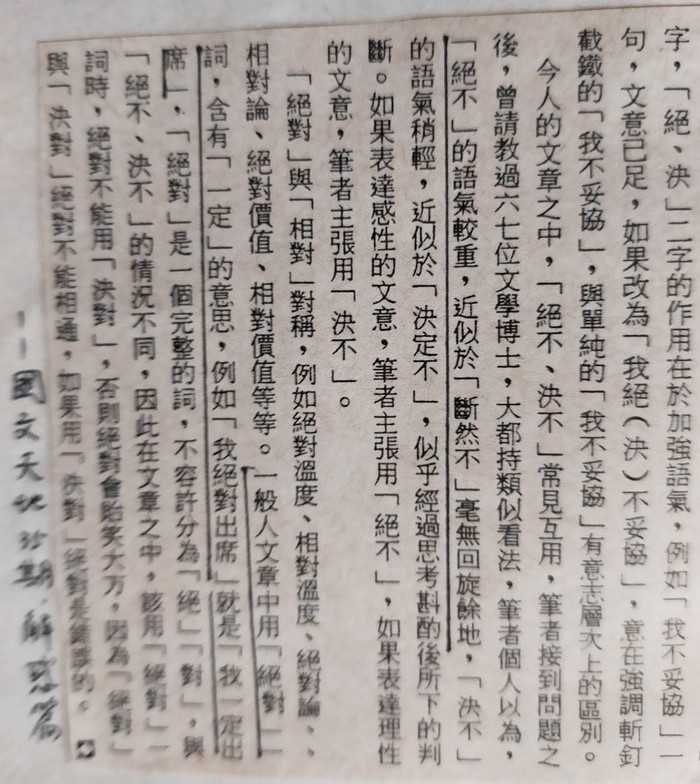 字,「絕、決」二字的作用在於加強語氣,例如「我不妥協」一
句,文意已足,如果改為「我絕(決)不妥協」,意在強調斬釘
截鐵的「我不妥協」,與單純的「我不妥協」有意志層次上的區別。
今人的文章之中,「絕不、決不」常見互用,筆者接到問題之
後,曾請教過六七位文學博士,大都持類似看法,筆者個人以為,
「絕不」的語氣較重,近似於「斷然不」毫無回旋餘地,「決不」
的語氣稍輕,近似於「決定不」,似乎經過思考斟酌後所下的判
斷。如果表達感性的文意,筆者主張用「絕不」,如果表達理性
的文意,筆者主張用「決不」。
「絕對」與「相對」對稱,例如絕對溫度、相對溫度、絕對論、
相對論、絕對價值、相對價值等等。一般人文章中用「絕對」一
詞,含有「一定」的意思,例如「我絕對出席」就是「我一定出
席」,「絕對」是一個完整的詞,不容許分為「絕」「對」,與
「絕不、決不」的情況不同,因此在文章之中,該用「絕對」一
詞時,絕對不能用「決對」,否則絕對會貽笑大方。因為「絕對」
與「決對」絕對不能相通,如果用「決對」絕對是錯誤的。
——國文天地 期.解惑篇